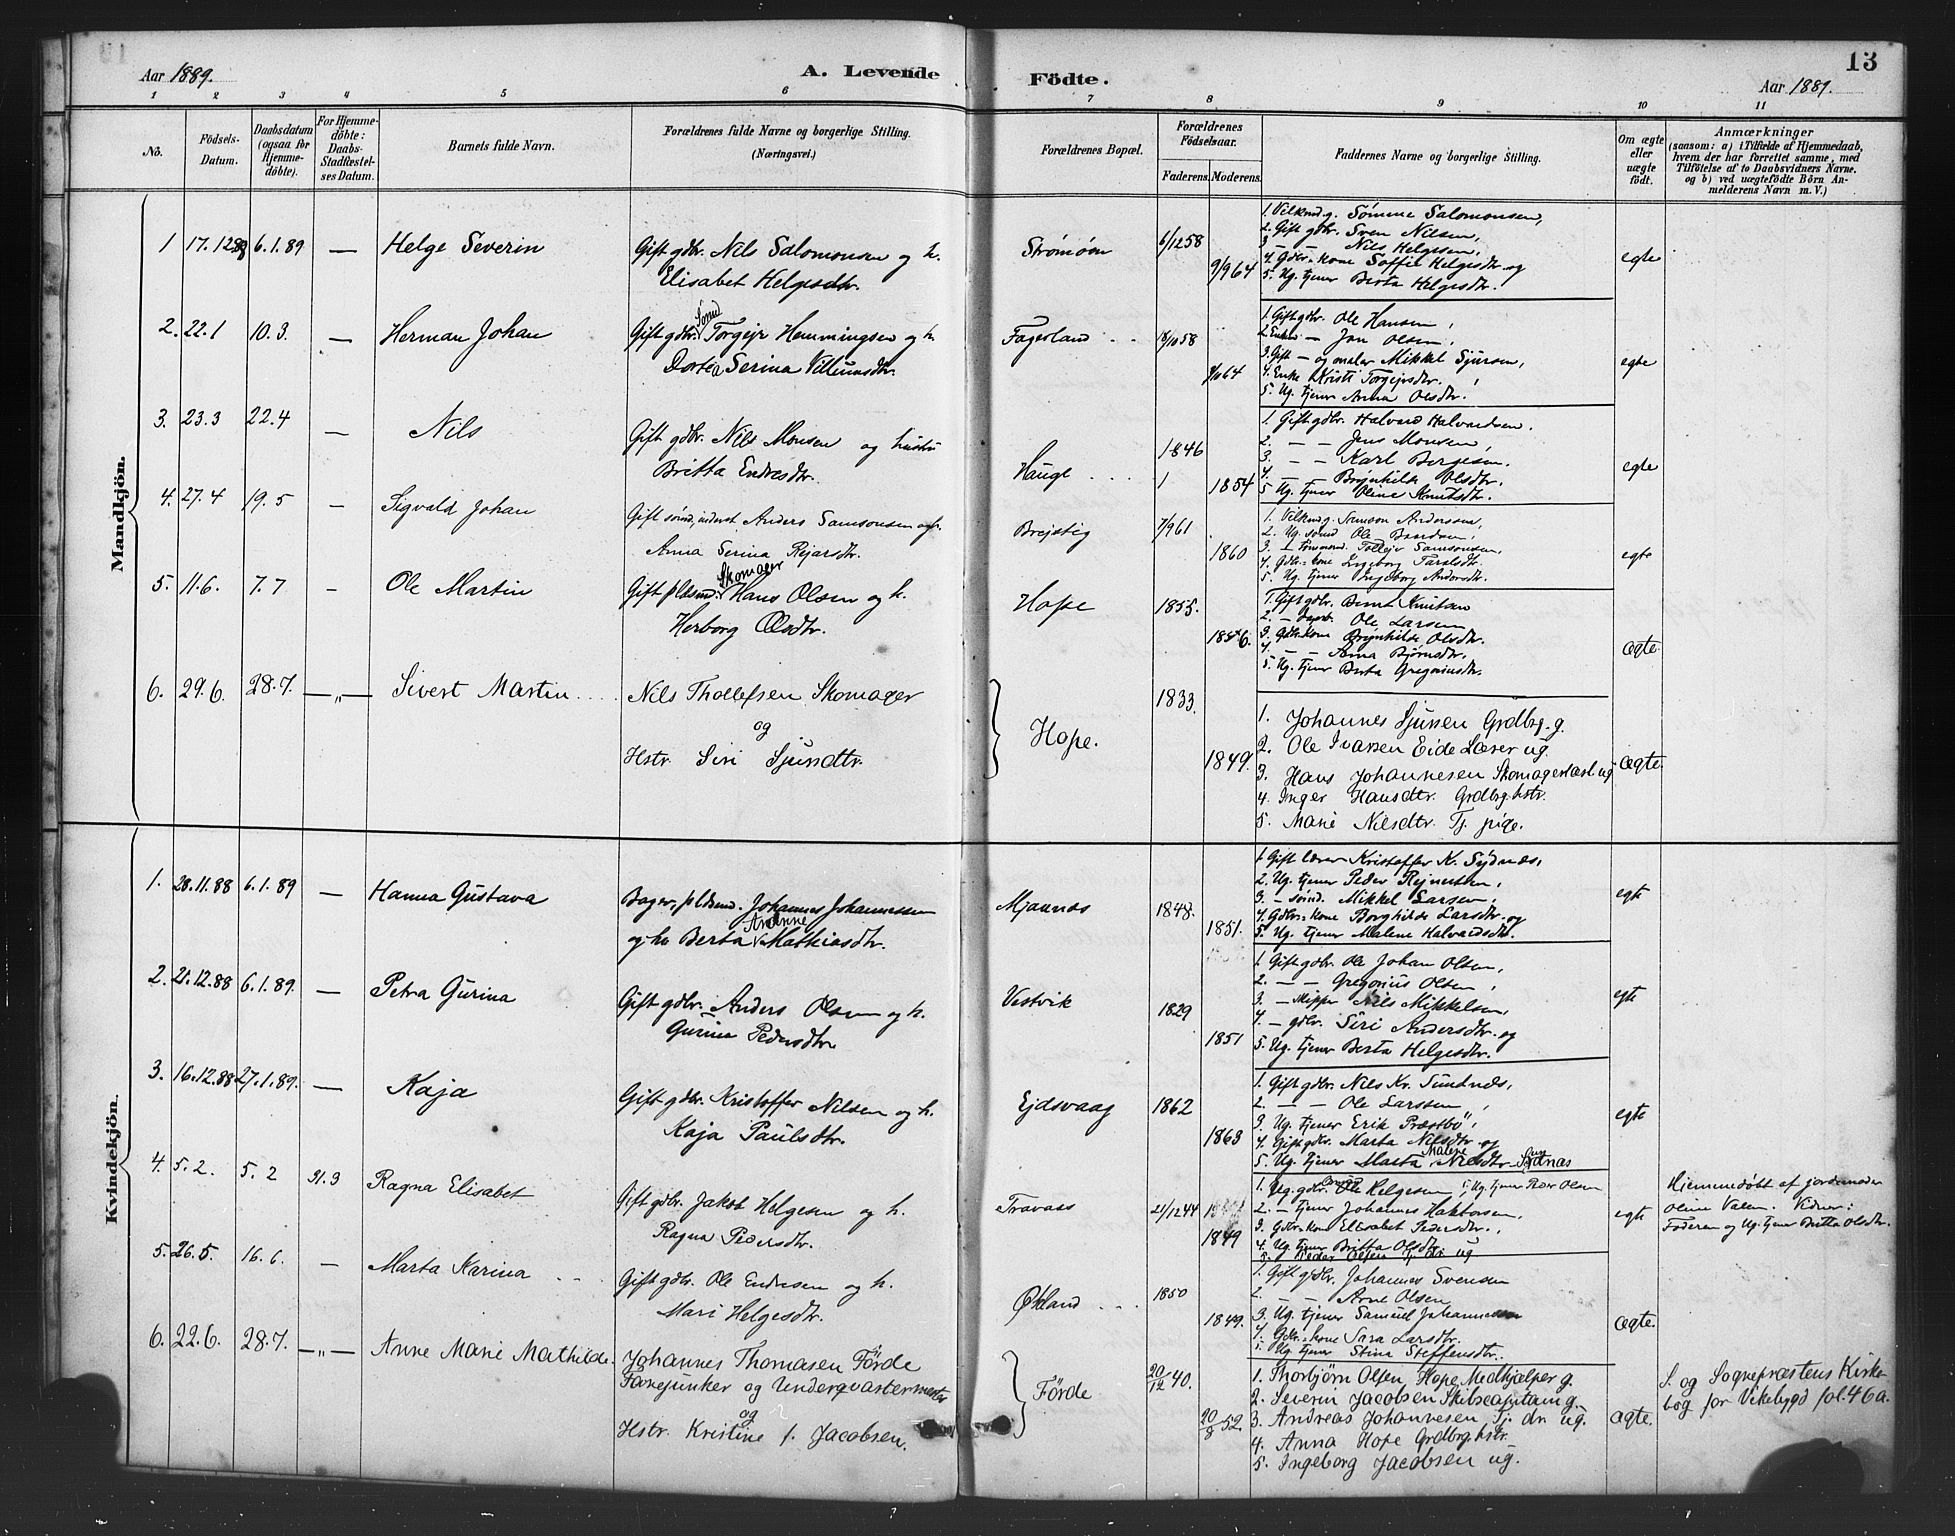 Aar 1889.
A. Levende
Födte.
13
Aar 1889.
1 2 3 4 5 6 7 8 9 10 11
No.
Födsels-Datum.
Daabsdatum (ogsaa for Hjemme-döbte).
For Hjemme-döbte: Daabs-Stadfæstel-ses Datum.
Barnets fulde Navn.
Forældrenes fulde Navne og borgerlige Stilling. (Næringsvei.)
Forældrenes Bopæl.
Forældrenes Födselsaar.
Faderens. Moderens.
Faddernes Navne og borgerlige Stilling.
Om ægte eller uægte födt.
Anmærkninger
(saasom: a) i Tilfælde af Hjemmedaab, hvem der har forrettet samme, med Tilföielse af to Daabsvidners Navne. og b) ved uægtefödte Börn An-melderens Navn m. V.)
Mandkjön.
1 17.12.88 6.1.89 — Helge Severin
Gift gdbr. Nils Salomonsen og h.
Elisabet Helgesdtr.
Strømøen 6/12 58 9/9 64
1. Vilkmd g. Sømme Salomonsen,
2. Gift gdbr. Sven Nilsen,
3 — — Nils Helgesen,
4. Gdbr.-kone Soffie Helgesdtr. og
5. Ug. tjener Berta Helgesdtr.
egte
2. 22.1 10.3. — Herman Johan
Gift gdbr. Torgejr Hemmingsen og h.
Dortea Serina Villumsdtr.
Fagerland 18/10 58
1. Gift gdbr. Ole Hansen,
2. Enkem — Jon Olsen,
3. Gift — og maler Mikkel Sjursen,
4. Enke Kristi Torgejrsdtr.,
5. Ug. tjener Anna Olsdtr.
egte
3. 23.3 22.4 — Nils
Gift gdbr. Nils Monsen og hustru
Britta Endresdtr.
Hauge 1846 1854
1. Gift gdbr. Halvard Halvardsen.
2. — — Jens Monsen,
3. — — Karl Børgesen.
4. — Brynhilde Olsdtr.
5 Ug. tjener Oline Knutsdtr.
egte
4. 27.4 19.5 — Sigvald Johan
Gift sømd, inderst Anders Samsonsen og h.
Anna Serina Rejarsdtr.
Brejstig 7/9 61 1860
1. Vilkmd g. Samson Anderssen,
2. Ug. sømd Ole
3. — Tømmermd. Tollejv Samsonsen,
4. Gdbr.-kone Ingeborg
5. Ug. tjener Ingeborg Andersdtr.
egte
5. 11.6. 7.7 - Ole Martin
Gift pldsmd. Skomager Hans Olsen og h.
Herborg Olsdtr.
Hope 1855. 1856.
1. Gift gdbr. Bernt Knutsen
2. — Ole Larsen
3. Gdbr.kone Brynhilde Olsdtr.
4. — — Anna Bjørnsdtr.
5. Ug. tjener Berta Gregoriusdtr.
ægte.
6. 29.6. 28.7. —„— Sivert Martin
Nils Thollefsen Skomager
og
Hstr. Siri Sjursdtr.
Hope. 1833. 1849.
1. Johannes Sjursen Grdbrg. g.
2. Ole Ivarsen Eide Lærer ug.
3. Hans Johannesen Skomagerlærl. ug
4. Inger Hansdtr. Grdbrg. hstr.
5. Marie Nilsdtr. Tj. pige.
ægte.
Kvindekjön.
1. 28.11.88 6.1.89 — Hanna Gustava
Bager, pldsmd. Johannes Johannessen
og h. Berta Arianne Mathiasdtr.
Mjaanæs 1848. 1851.
1. Gift lærer Kristoffer K. Sydnæs,
2. Ug. tjener Peder Rejnertsen,
3. — sømd. Mikkel Larsen,
4. Gdbr.-kone Borghilde Larsdtr. og
5. Ug. tjener Malene Halvardsdtr.
egte
2. 21.12.88 6.1.89. — Petra Gurina
Gift gdbr. Anders Olsen og h.
Gurine Pedersdtr.
Vestvik 1829 1851
1. Gift gdbr. Ole Johan Olsen,
2. — — Gregorius Olsen,
3. — skipper Nils Mikkelsen,
4. — gdbr. Siri Andersdtr. og
5. Ug. tjener Berta Helgesdtr.
egte
3. 16.12.88 27.1.89. — Kaja
Gift gdbr. Kristoffer Nilsen og h.
Kaja Paulsdtr.
Ejdsvaag 1862 1863
1. Gift gdbr. Nils Kr. Sundnæs,
2. — — Ole Larssen,
3. Ug. tjener Erik Præstbö,
4. Gift gdbr. Marta Nilsdtr. og
5. Ug. tjener Marta Malene Nilsdtr. Sydnæs
egte
4. 5.2. 5.2 31.3 Ragna Elisabet
Gift gdbr. Jakob Helgesen og h.
Ragna Pedersdtr.
Travaas 21/12 44 1849
1. Ug. gdbr. Ole Helgesen, Ug. tjener Peder Olsen
2. — tjener Johannes Haktorsen,
3. Gdbr-kone Elisabet Pedersdtr.,
4. Ug. tjener Britta Olsdtr.
5. Peder Olsen Tj. dr. ug
egte
Hjemmedøbt af jordemoder
Oline Valen. Vidner:
Faderen og Ug. tjener Britta Olsdtr.
5. 26.5. 16.6. — Marta Karina
Gift gdbr. Ole Endresen og h.
Mari Helgesdtr.
Økland 1850 1849.
1. Gift gdbr. Johannes Svensen
2. — — Arne Olsen
3. Ug. tjener Samuel Johannessen
4. Gdbr.-kone Sara Larsdtr.
5. Ug. tjener Stina Steffensdtr.
ægte.
6. 22.6. 28.7. —„— Anne Marie Mathilde.
Johannes Thomasen Förde
Fanejunker og Underqvartermester
og
Hstr. Kristine f. Jacobsen.
Förde 20/12 40. 20/8 52.
1. Thorbjörn Olsen Hope Medhjælper g.
2. Severin Jacobsen Skibscapitain g.
3. Andreas Johannesen Tj. dr. ug.
4. Anna Hope Grdbrg. hstr.
5. Ingeborg Jacobsen ug.
ægte.
S. og Sognepræstens Kirke-
bog for Vikebygd fol. 46a.